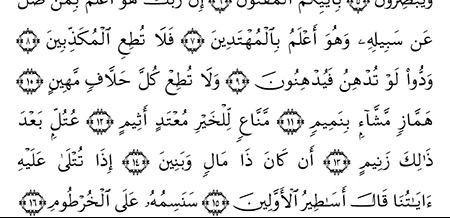 وَيُبْصِرُونَ ﴿٥﴾ بِأَييِّكُمُ ٱلْمَفْتُونُ ﴿٦﴾ إِنَّ رَبَّكَ هُوَ أَعْلَمُ بِمَن ضَلَّ
عَن سَبِيلِهِۦ وَهُوَ أَعْلَمُ بِٱلْمُهْتَدِينَ ﴿٧﴾ فَلَا تُطِعِ ٱلْمُكَذِّبِينَ ﴿٨﴾
وَدُّوا۟ لَوْ تُدْهِنُ فَيُدْهِنُونَ ﴿٩﴾ وَلَا تُطِعْ كُلَّ حَلَّافٍ مَّهِينٍ ﴿١٠﴾
هَمَّازٍ مَّشَّآءٍۭ بِنَمِيمٍ ﴿١١﴾ مَّنَّاعٍ لِّلْخَيْرِ مُعْتَدٍ أَثِيمٍ ﴿١٢﴾ عُتُلٍّۭ بَعْدَ
ذَٰلِكَ زَنِيمٍ ﴿١٣﴾ أَن كَانَ ذَا مَالٍ وَبَنِينَ ﴿١٤﴾ إِذَا تُتْلَىٰ عَلَيْهِ
ءَايَٰتُنَا قَالَ أَسَٰطِيرُ ٱلْأَوَّلِينَ ﴿١٥﴾ سَنَسِمُهُۥ عَلَى ٱلْخُرْطُومِ ﴿١٦﴾